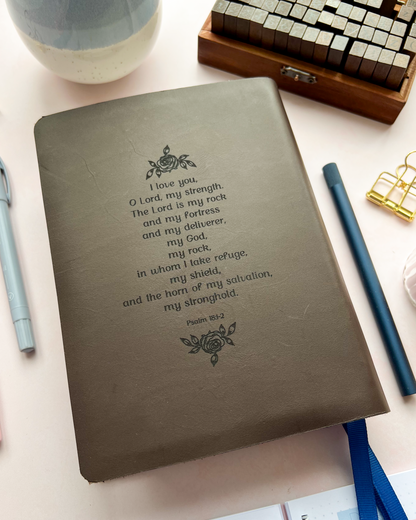 I love you,
O Lord, my strength.
The Lord is my rock
and my fortress
and my deliverer,
my God,
my rock,
in whom I take refuge,
my shield,
and the horn of my salvation,
my stronghold.
Psalm 18:1-2